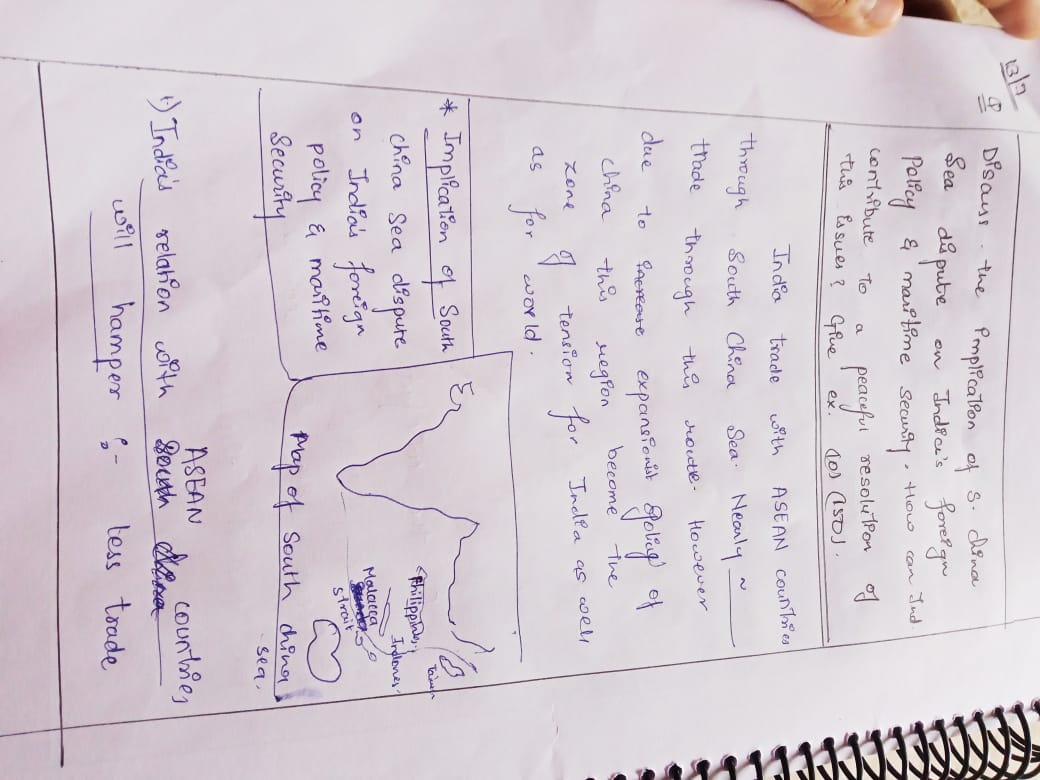 13/7
Q
Discuss the Implication of S. china
Sea dispute on India's foreign
policy & maritime security. How can Ind.
contribute to a peaceful resolution of
this issues? Give ex. (10) (150).
India trade with ASEAN countries
through South China Sea. Nearly ~
trade through this route. However
due to increase expansionist policy of
china this region become the
zone of tension for India as well
as for world.
* Implication of South
china Sea dispute
on India's foreign
policy & maritime
Security
Taiwan
Philippines
Indones.
Malacca
strait
Map of South china
sea.
ASEAN
1) India's relation with South china countries
will hamper :- less trade